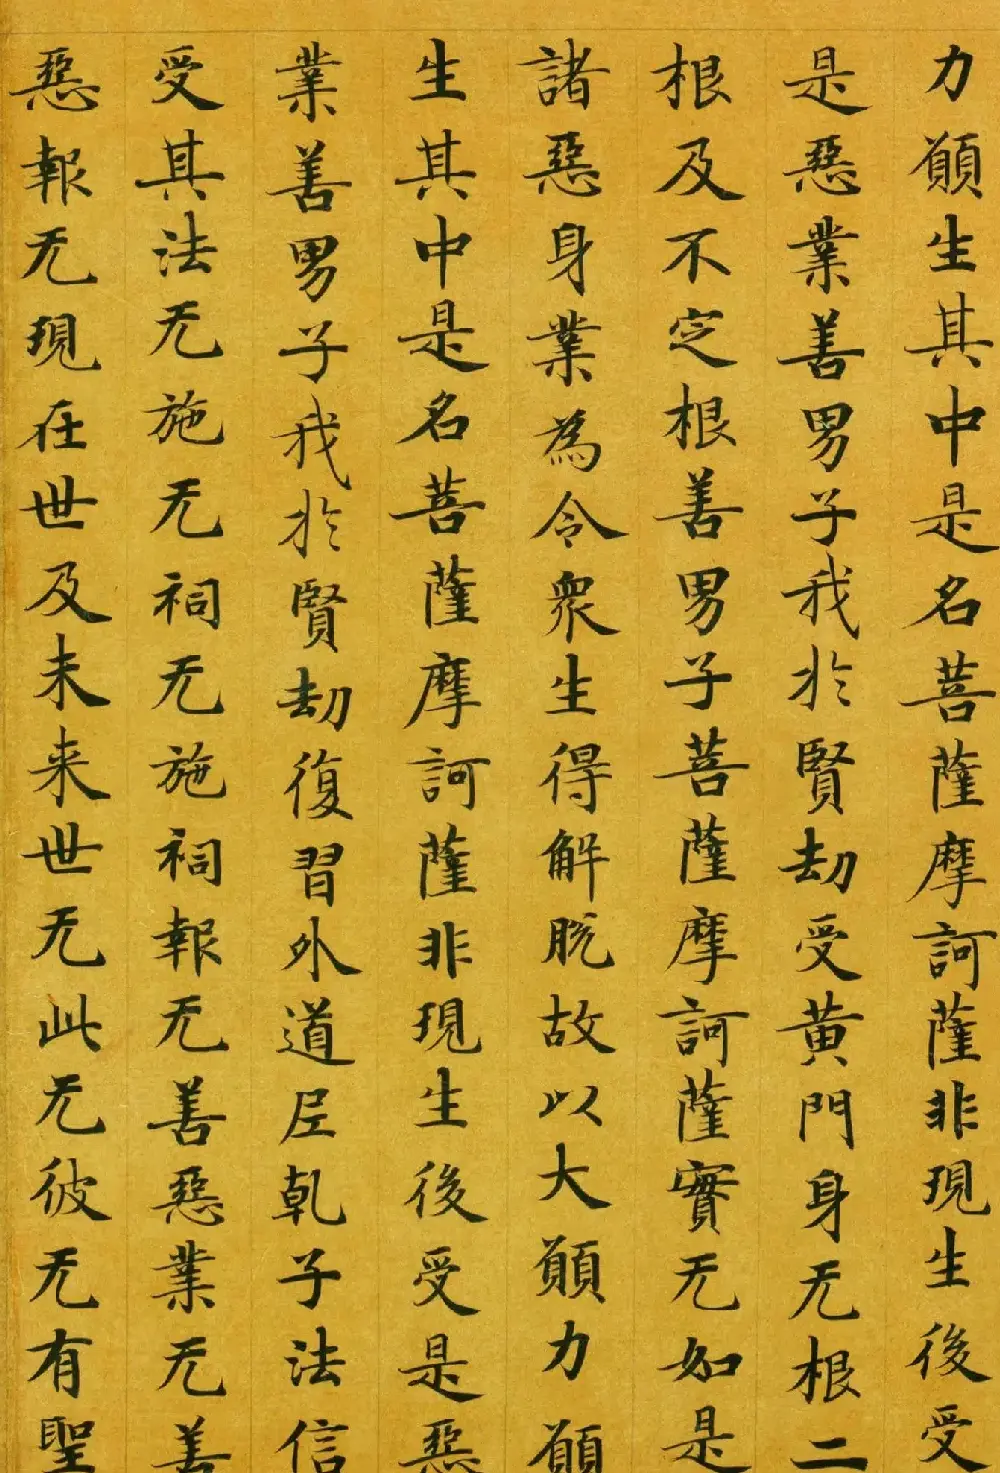 力願生其中是名菩薩摩訶薩非現生後受
是惡業善男子我於賢劫受黃門身无根二
根及不定根善男子菩薩摩訶薩實无如是
諸惡身業為令衆生得解脫故以大願力願
生其中是名菩薩摩訶薩非現生後受是惡
業善男子我於賢劫復習外道尼乹子法信
受其法无施无祠无施祠報无善惡業无善
惡報无現在世及未来世无此无彼无有聖